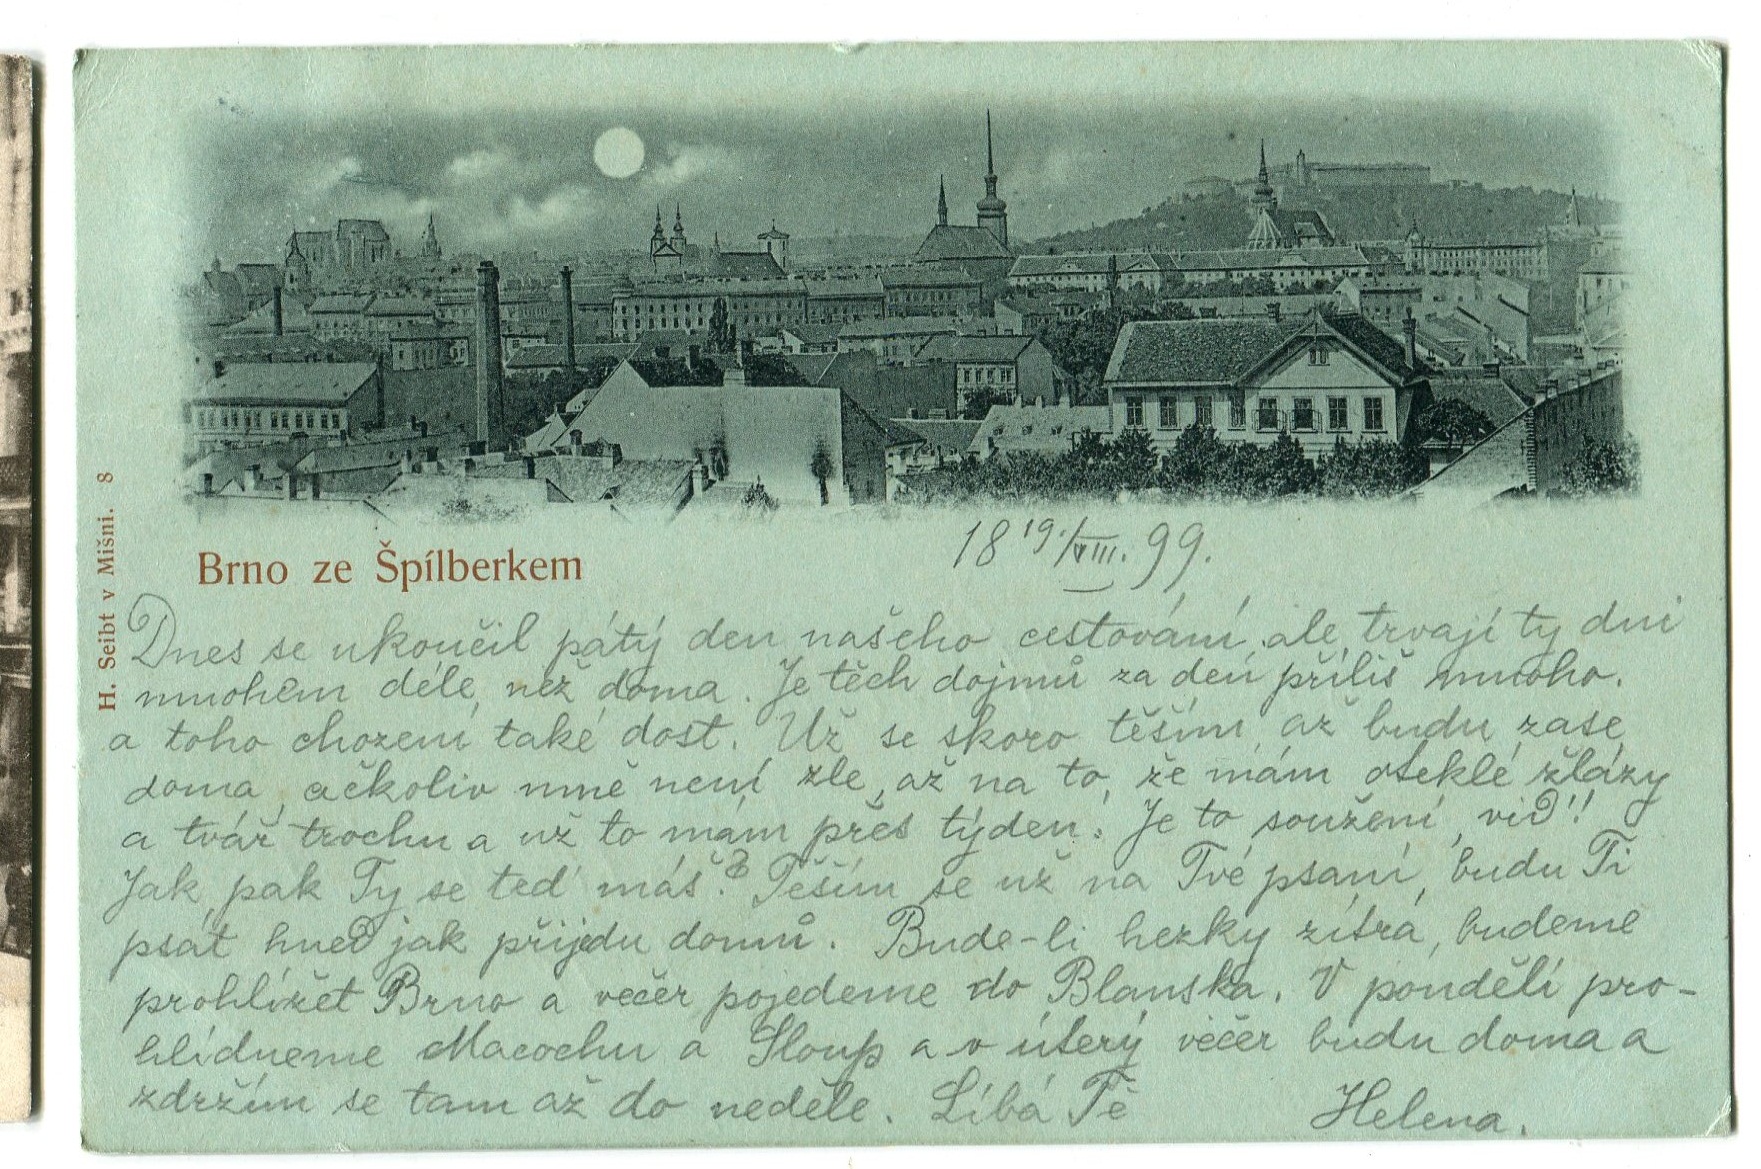 Brno ze Špílberkem
H. Seibt v Míšni. 8
18 19./VIII. 99.
Dnes se ukončil pátý den našeho cestování, ale trvají ty dni
mnohem déle, než doma. Je těch dojmů za den příliš mnoho.
a toho chození také dost. Už se skoro těším, až budu zase
doma, ačkoliv mně není zle, až na to, že mám oteklé žlázy
a tvář trochu a už to mám přes týden. Je to soužení, viď!!
Jak pak Ty se teď máš? Těším se už na Tvé psaní, budu Ti
psát hned jak přijedu domů. Bude-li hezky zítra, budeme
prohlížet Brno a večer pojedeme do Blanska. V pondělí pro-
hlídneme Macochu a Sloup a v úterý večer budu doma a
zdržím se tam až do neděle. Líbá Tě
Helena.